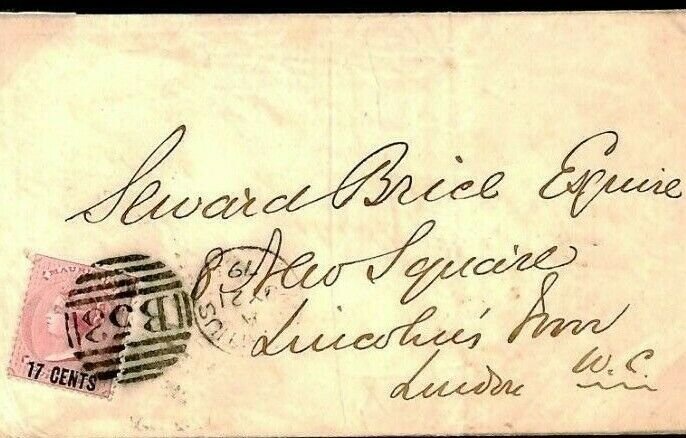 Seward Brice Esquire
8 New Square
Lincoln's Inn
London W.C.
MAURITIUS
17 CENTS
B53
79
21